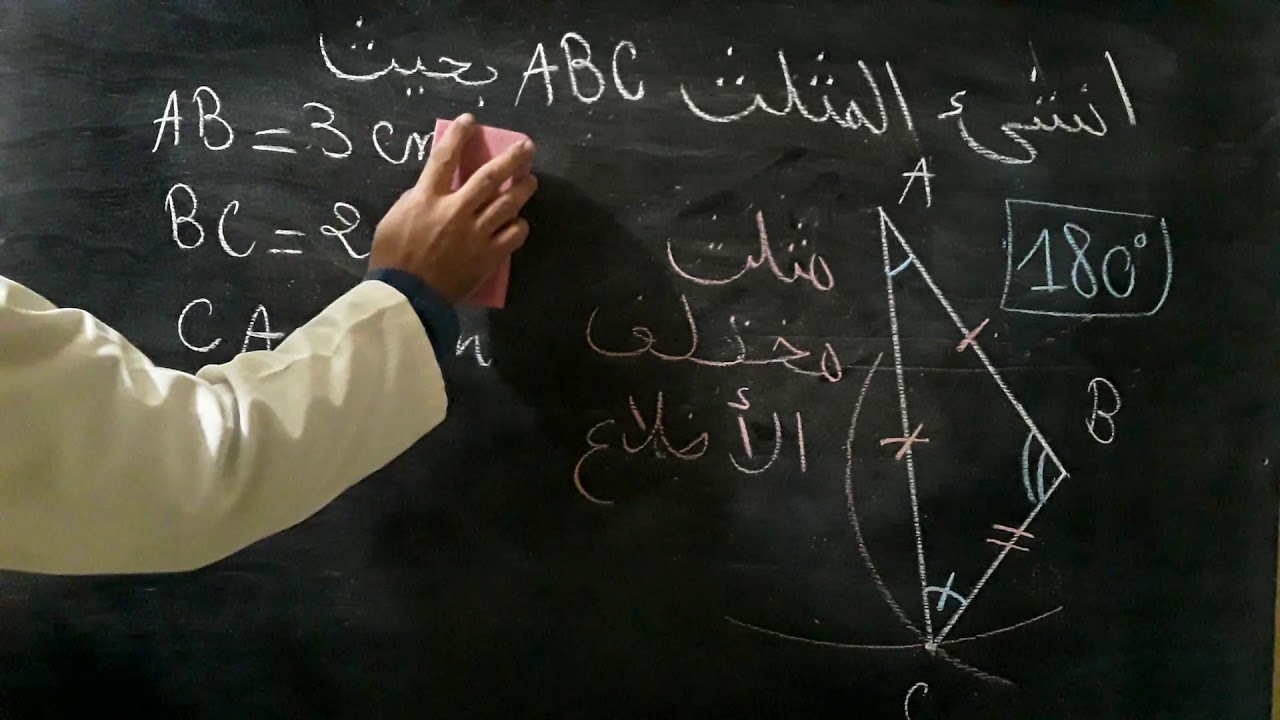 انشئ المثلث ABC بحيث
AB = 3 cm
BC = 2
CA
A
180°
مثلث
مختلف
الأضلاع
B
C